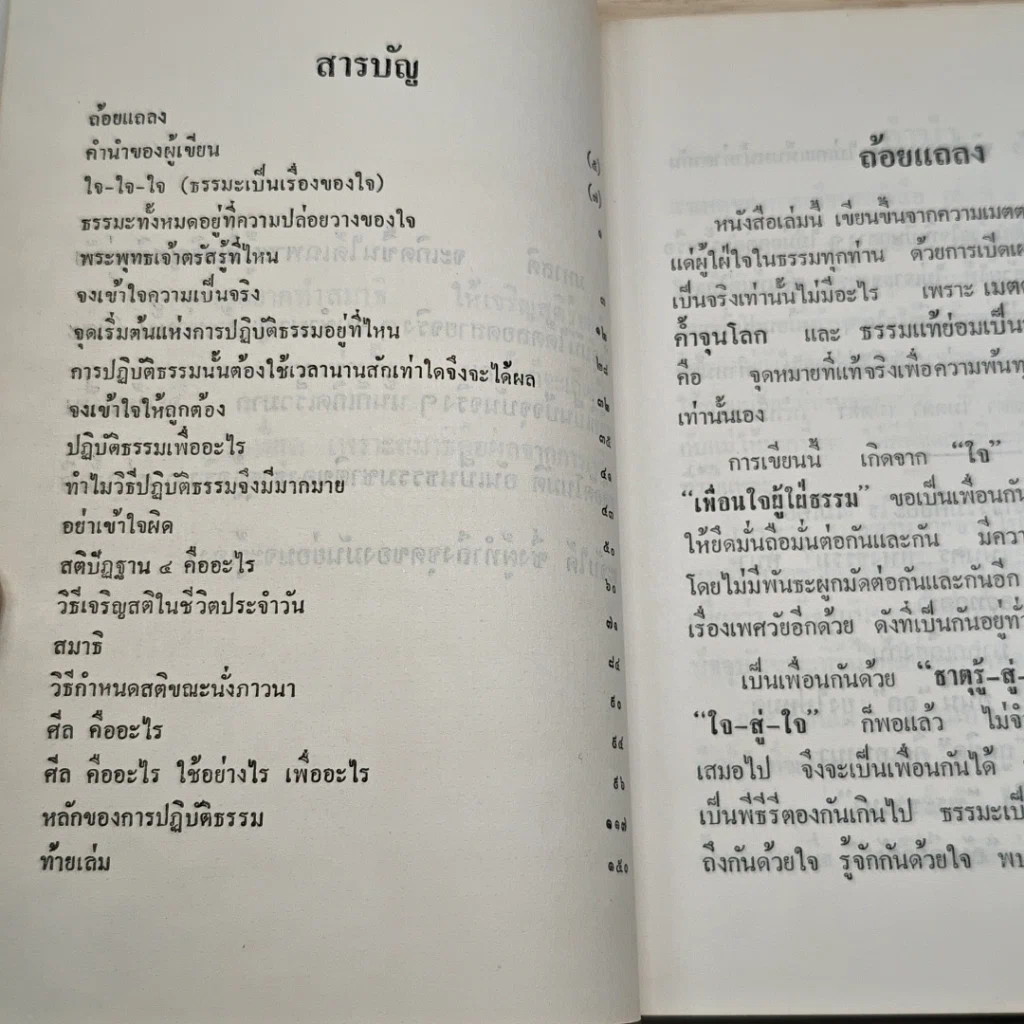 สารบัญ
ถ้อยแถลง (๕)
คำนำของผู้เขียน (๗)
ใจ-ใจ-ใจ (ธรรมะเป็นเรื่องของใจ) ๑
ธรรมะทั้งหมดอยู่ที่ความปล่อยวางของใจ
พระพุทธเจ้าตรัสรู้ที่ไหน ๓
จงเข้าใจความเป็นจริง ๑๒
จุดเริ่มต้นแห่งการปฏิบัติธรรมอยู่ที่ไหน ๒๘
การปฏิบัติธรรมนั้นต้องใช้เวลานานสักเท่าใดจึงจะได้ผล ๓๒
จงเข้าใจให้ถูกต้อง ๓๕
ปฏิบัติธรรมเพื่ออะไร ๔๑
ทำไมวิธีปฏิบัติธรรมจึงมีมากมาย ๔๓
อย่าเข้าใจผิด ๕๐
สติปัฏฐาน ๔ คืออะไร ๖๐
วิธีเจริญสติในชีวิตประจำวัน ๗๑
สมาธิ ๘๔
วิธีกำหนดสติขณะนั่งภาวนา ๙๐
ศีล คืออะไร ๙๔
ศีล คืออะไร ใช้อย่างไร เพื่ออะไร ๙๖
หลักของการปฏิบัติธรรม ๑๑๗
ท้ายเล่ม ๑๕๐
ถ้อยแถลง
หนังสือเล่มนี้ เขียนขึ้นจากความเมตต
แด่ผู้ใฝ่ใจในธรรมทุกท่าน ด้วยการเปิดเผ
เป็นจริงเท่านั้นไม่มีอะไร เพราะ เมตต
ค้ำจุนโลก และ ธรรมแท้ย่อมเป็น
คือ จุดหมายที่แท้จริงเพื่อความพ้นทุ
เท่านั้นเอง
การเขียนนี้ เกิดจาก “ใจ”
“เพื่อนใจผู้ใฝ่ธรรม” ขอเป็นเพื่อนกัน
ให้ยึดมั่นถือมั่นต่อกันและกัน มีควา
โดยไม่มีพันธะผูกมัดต่อกันและกันอีก
เรื่องเพศวัยอีกด้วย ดังที่เป็นกันอยู่ทั่
เป็นเพื่อนกันด้วย “ธาตุรู้-สู่-
“ใจ-สู่-ใจ” ก็พอแล้ว ไม่จำ
เสมอไป จึงจะเป็นเพื่อนกันได้
เป็นพิธีรีตองกันเกินไป ธรรมะเป็
ถึงกันด้วยใจ รู้จักกันด้วยใจ พบ